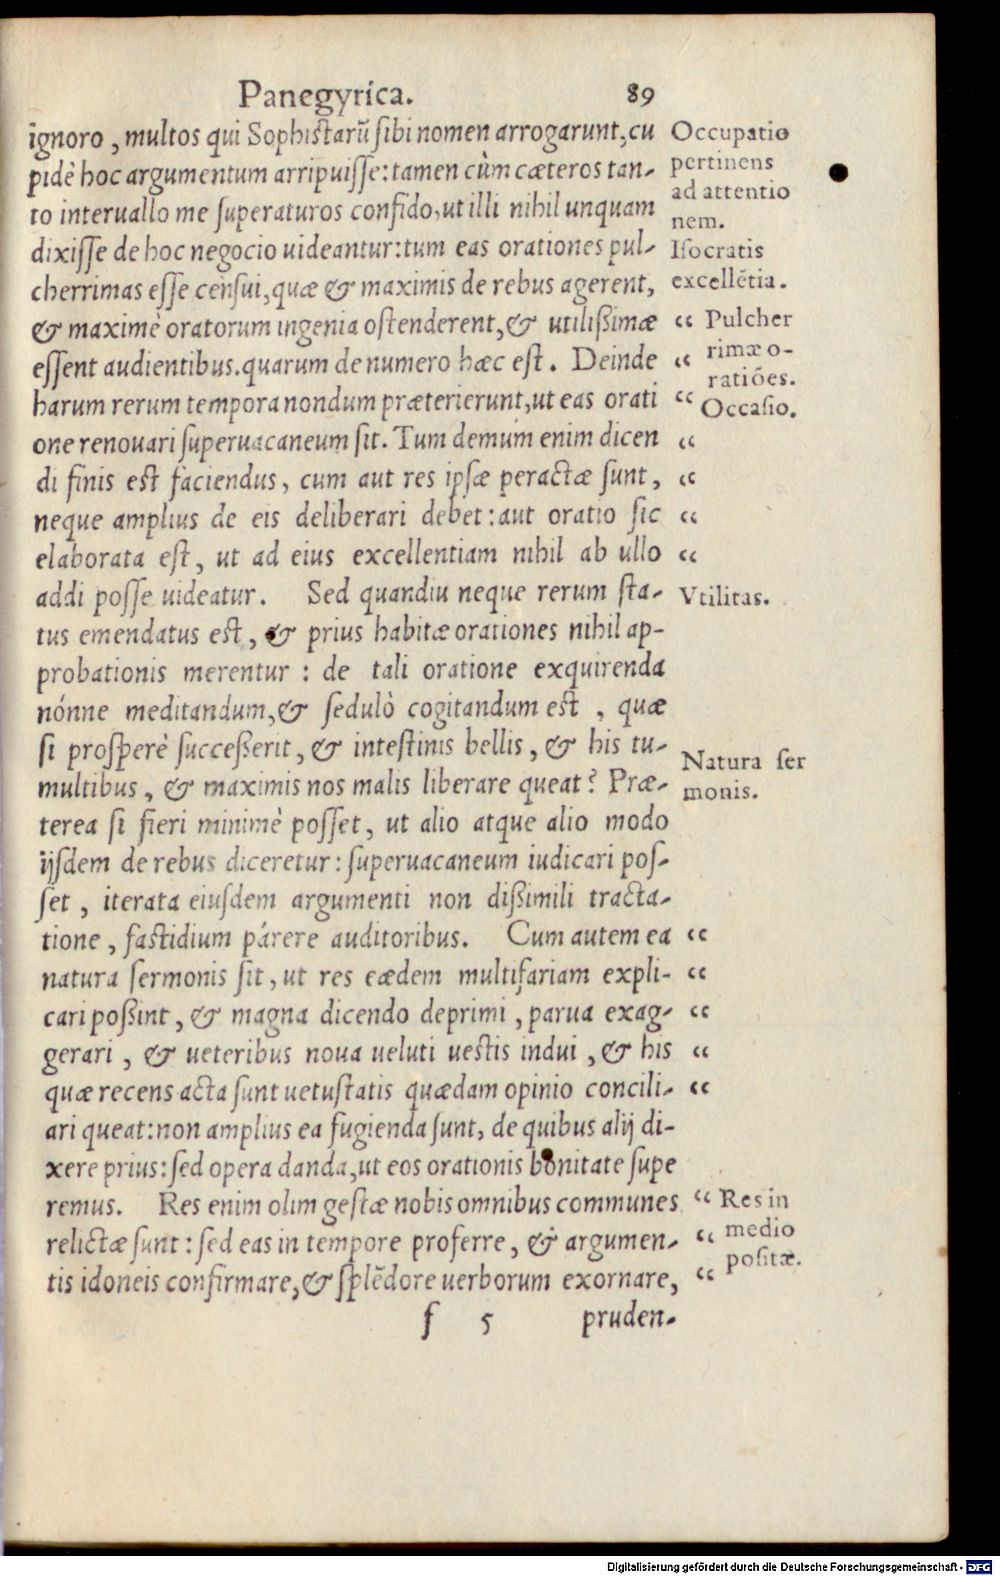 Panegyrica. 89
ignoro, multos qui Sophistarũ sibi nomen arrogarunt, cu
pidè hoc argumentum arripuisse: tamen cùm cæteros tan-
to interuallo me superaturos confido, ut illi nihil unquam
dixisse de hoc negocio uideantur: tum eas orationes pul-
cherrimas esse censui, quæ & maximis de rebus agerent,
& maximè oratorum ingenia ostenderent, & utilißimæ
essent audientibus. quarum de numero hæc est. Deinde
harum rerum tempora nondum præterierunt, ut eas orati
one renouari superuacaneum sit. Tum demum enim dicen
di finis est faciendus, cum aut res ipsæ peractæ sunt,
neque amplius de eis deliberari debet: aut oratio sic
elaborata est, ut ad eius excellentiam nihil ab ullo
addi posse uideatur. Sed quandiu neque rerum sta-
tus emendatus est, & prius habitæ orationes nihil ap-
probationis merentur : de tali oratione exquirenda
nónne meditandum, & sedulò cogitandum est , quæ
si prosperè succeßerit, & intestinis bellis, & his tu-
multibus, & maximis nos malis liberare queat? Præ-
terea si fieri minimè posset, ut alio atque alio modo
ijsdem de rebus diceretur: superuacaneum iudicari pos-
set, iterata eiusdem argumenti non dißimili tracta-
tione, fastidium párere auditoribus. Cum autem ea
natura sermonis sit, ut res eædem multifariam expli-
cari poßint, & magna dicendo deprimi, parua exag-
gerari, & ueteribus noua ueluti uestis indui, & his
quæ recens acta sunt uetustatis quædam opinio concili-
ari queat: non amplius ea fugienda sunt, de quibus alij di-
xere prius: sed opera danda, ut eos orationis bonitate supe
remus. Res enim olim gestæ nobis omnibus communes
relictæ sunt: sed eas in tempore proferre, & argumen-
tis idoneis confirmare, & splẽdore uerborum exornare,
f 5 pruden-
Occupatio
pertinens
ad attentio
nem.
Isocratis
excellẽtia.
“ Pulcher
“ rimæ o-
ratiões.
“ Occasio.
“
“
“
“
Vtilitas.
Natura ser
monis.
“
“
“
“
“
“ Res in
“ medio
positæ.
“
Digitalisierung gefördert durch die Deutsche Forschungsgemeinschaft - DFG